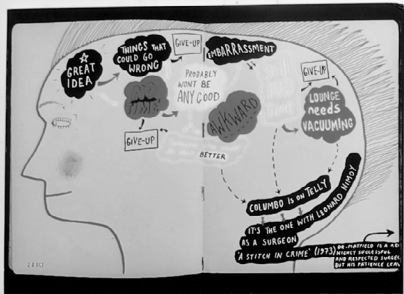 GREAT
IDEA
THINGS THAT
COULD GO
WRONG
GIVE-UP
EMBARRASSMENT
PROBABLY
WON'T BE
ANY GOOD
GIVE-UP
AWKWARD
BETTER
GIVE-UP
LOUNGE
needs
VACUUMING
COLUMBO IS ON TELLY
IT'S THE ONE WITH LEONARD NIMOY
AS A SURGEON
'A STITCH IN CRIME' (1973)
DR. MAYFIELD IS A
HIGHLY SUCCESSFUL
AND RESPECTED SURGEON
BUT HIS PATIENCE